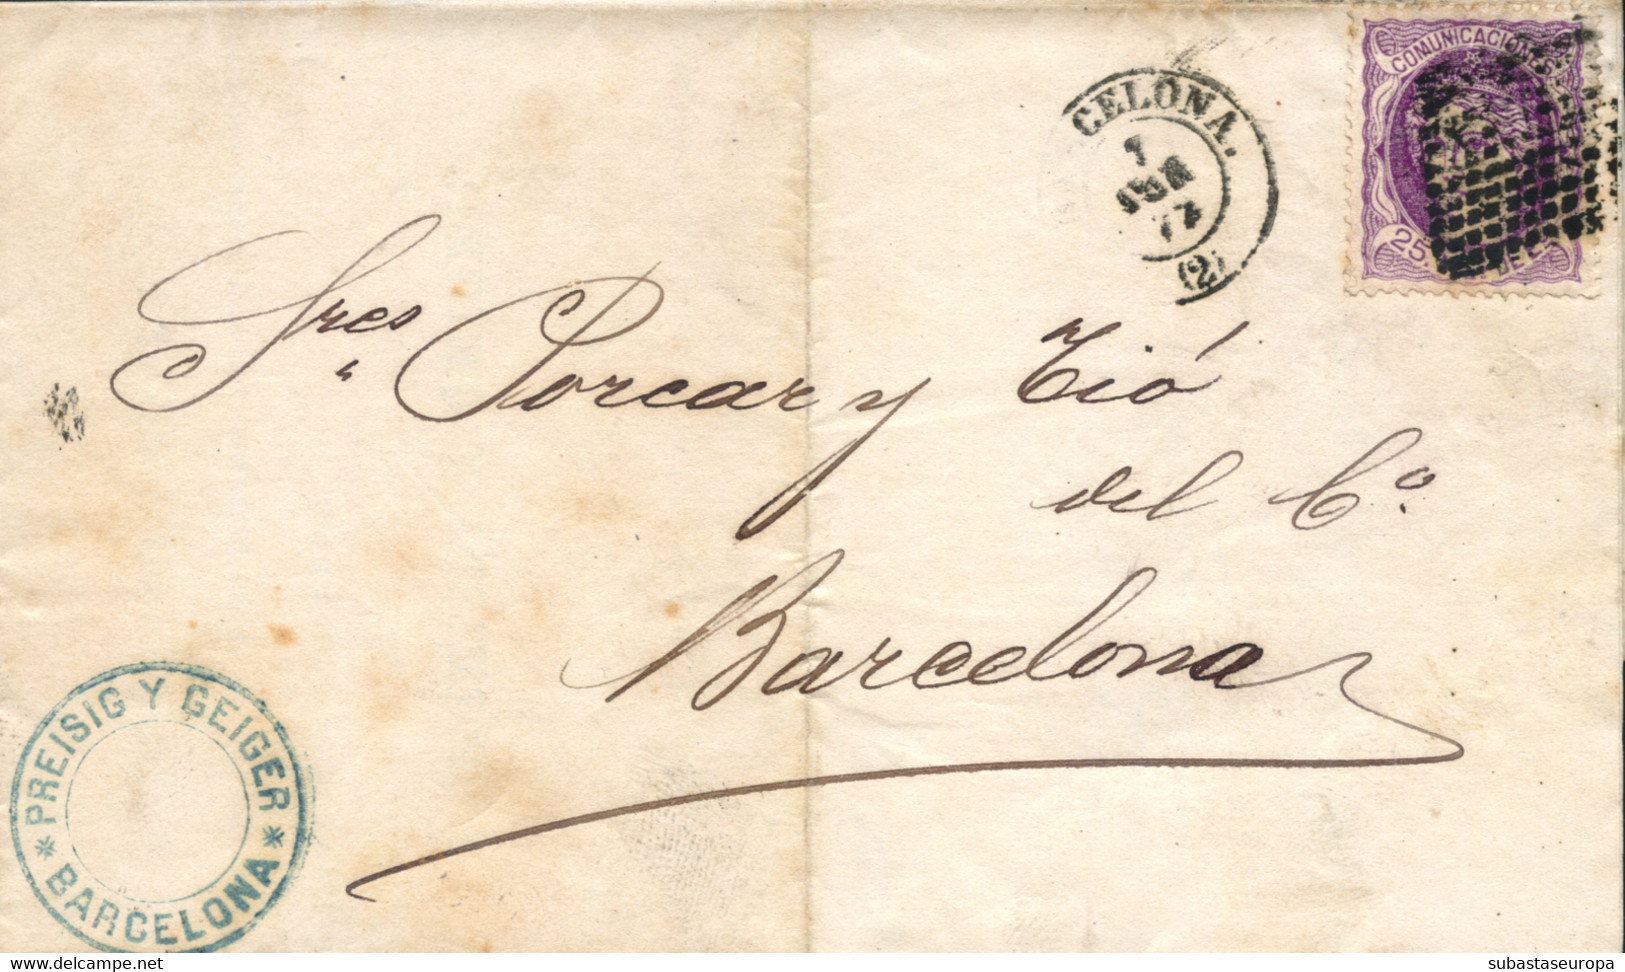 COMUNICACIONES
CELONA.
72
(2)
25.
DE
Sres Porcar y Tió
del Co.
Barcelona
PREISIG Y GEIGER
* BARCELONA *
delcampe.net
subastaseuropa